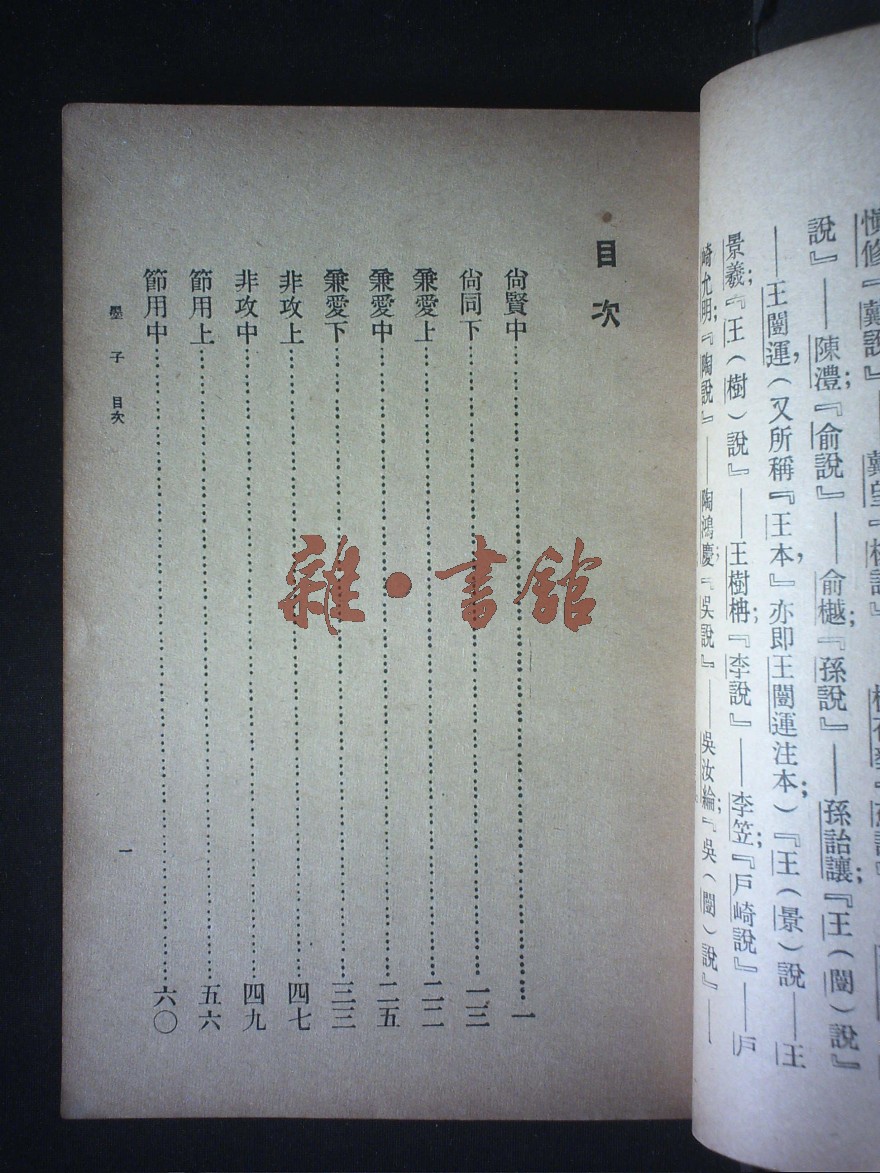 說』——陳澧；『俞說』——俞樾；『孫說』——孫詒讓；『王（闓）說』
——王闓運，（又所稱『王本』，亦即王闓運注本）；『王（景）說——王
景羲；『王（樹）說』——王樹枏；『李說』——李笠；『戶崎說』——戶
崎允明；『陶說』——陶鴻慶；『吳說』——吳汝綸；『吳（闓）說』——
目次
尙賢中 一
尙同下 一三
兼愛上 二二
兼愛中 二五
兼愛下 三三
非攻上 四七
非攻中 四九
節用上 五六
節用中 六〇
墨子 目次
一
雜·書館